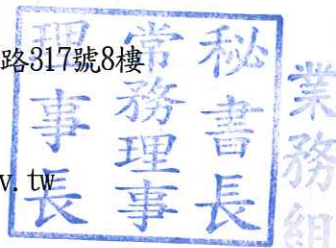 路317號8樓
v.tw
秘書長
常務理事
理事長
業務組